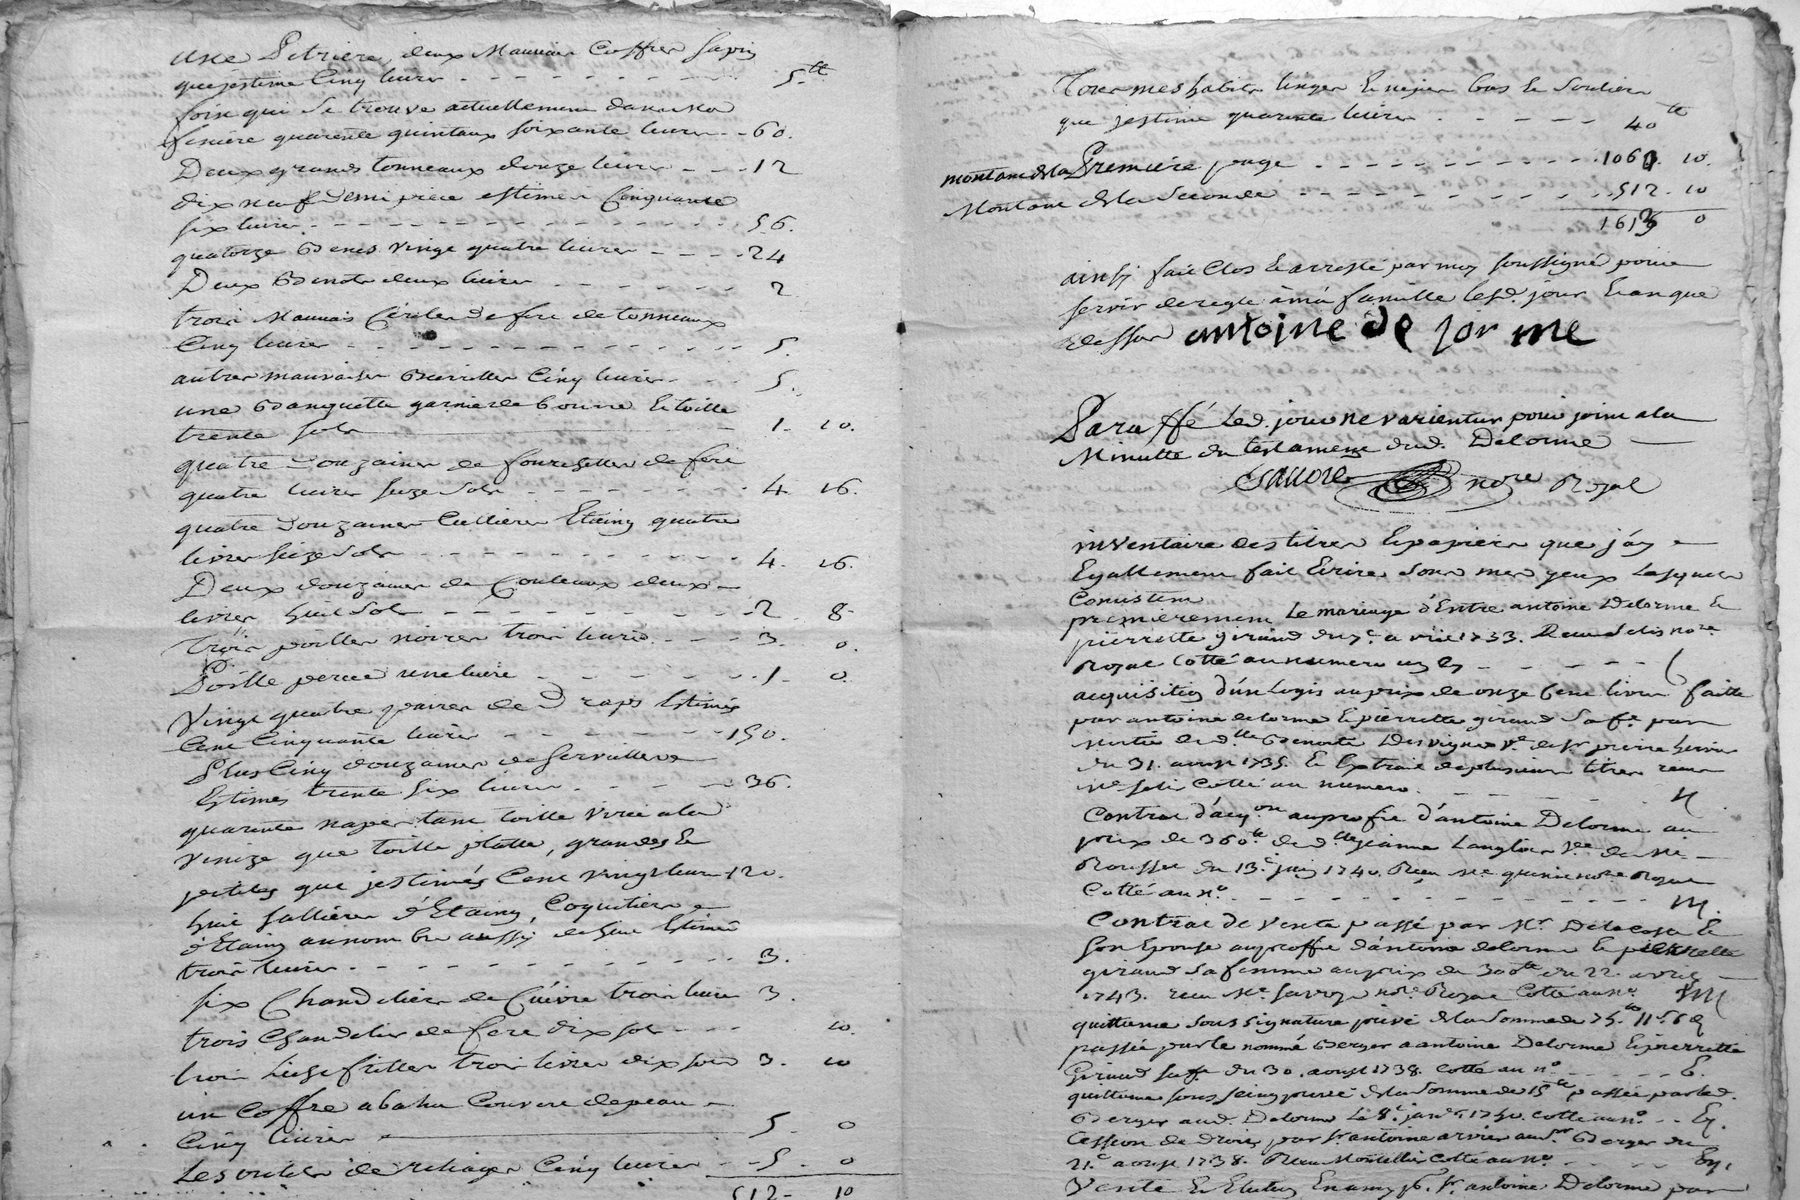 une Petriere, deux Mauvais Coffres sapin
que jestime Cinq livres - - - - - - 5 tt
foin qui se trouve actuellement dans ma
feniere quarente quintaux soixante livres - - 60.
Deux grands tonneaux douze livres - - - 12
dix neuf demi piece estimes Cinquante
six livres - - - - - - 56.
quatorze Benes vingt quatre livres - - - - 24
Deux Benots deux livres - - - - - 2
trois Mauvais Cercles de fere de tonneaux
Cinq livres - - - - - - 5.
autres mauvaises Barrilles Cinq livres - - - 5.
une Banquette garnie de bourre et toille
trente sols 1. 10.
quatre douzaines de fourchettes de fere
quatre livres seize sols - - - - - - 4. 16.
quatre douzaines Cuillieres Etaing quatre
livres seize sols - - - - - - 4. 16.
Deux douzaines de Couteaux deux
livres huit sols - - - - - - 2. 8.
Trois poilles noires trois livres - - - 3. 0.
Poille percée une livre - - - - - 1. 0.
Vingt quatre paires de Draps Estimés
Cent Cinquante livres - - - - - 150.
Plus Cinq douzaines de serviettes
Estimés trente six livres - - - - 36.
quarente napes tant toille
Venize que toille platte, grandes Et
petites que jestimés Cent vingt livres 120.
huit sallieres d'Etaing, Coquetiers
d'Etaing au nombre aussy de huit Estimé
trois livres - - - - - - 3.
six Chandeliers de Cuivre trois livres 3.
trois Chandelier de fere dix sols - - - 10.
trois livres dix sols 3. 10
un Coffre abahu Couvert de peau
Cinq livres 5. 0
Les outils de reliages Cinq livres - - 5. 0
512 - 10
Tous mes habits linges bas Et Souliers
que jestime quarente livres - - - - - 40 tt
montant de la Premiere page - - - - - - 1060. 10.
Montant de la Seconde - - - - - - 512. 10
1613 0
ainsy fait Clos Et arresté par moy soussigné pour
servir de regle à ma famille lesd. jour Et an que
dessus antoine de lor me
Paraffé Led. jour ne varientur pour joint a la
Minutte du testament dud. Delorme
Savoye nore Royal
inventaire des titres Et papiers que j'ay
Egallement fait Ecrire sous mes yeux Lesquels
Consistent
premierement Le mariage d'Entre antoine Delorme Et
pierrette giraud du 7e avril 1733. nore
Royal Cotté au numero un - - - - -
acquisition d'un Logis au prix de onze Cent livres faitte
par antoine delorme Et pierrette giraud sa fe. par
de dlle Benoite Desvignes ve. de sr pierre
du 31. aoust 1735. Et Extrait de plusieurs titres
Cotté au numero. - - - - - -
Contrat d'acqon au profit d'antoine Delorme au
prix de 360 tt de dlle jeanne Langlois ve. de Me
Rousset du 13e juin 1740. Receu Me nore Royal
Cotté au no. - - - - - -
Contrat de vente passé par Mr Delacosta Et
son Epouse au proffit d'antoine delorme Et pierrette
giraud sa femme au prix de 300 tt du 22 avril
1743. receu Me Savoye nore Royal Cotté au no.
quittance sous signature privé de la somme de 75 tt 11 s 6 d
passée par le nommé Berger a antoine Delorme Et pierrette
Giraud sa fe. du 30. aoust 1738. Cotté au no. - - - - -
quittance sous seing privé de la somme de 15 tt passée par led.
Berger aud. Delorme Le 8e janer 1740. cotté au no. - -
Cession de droits par sr antoine aud. sr Berger du
21e aoust 1738. Receu Cotté au no. - - - -
Vente Et sr. antoine Delorme par